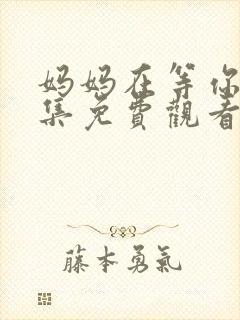 妈妈在等你
集免費觀看
藤本勇氣